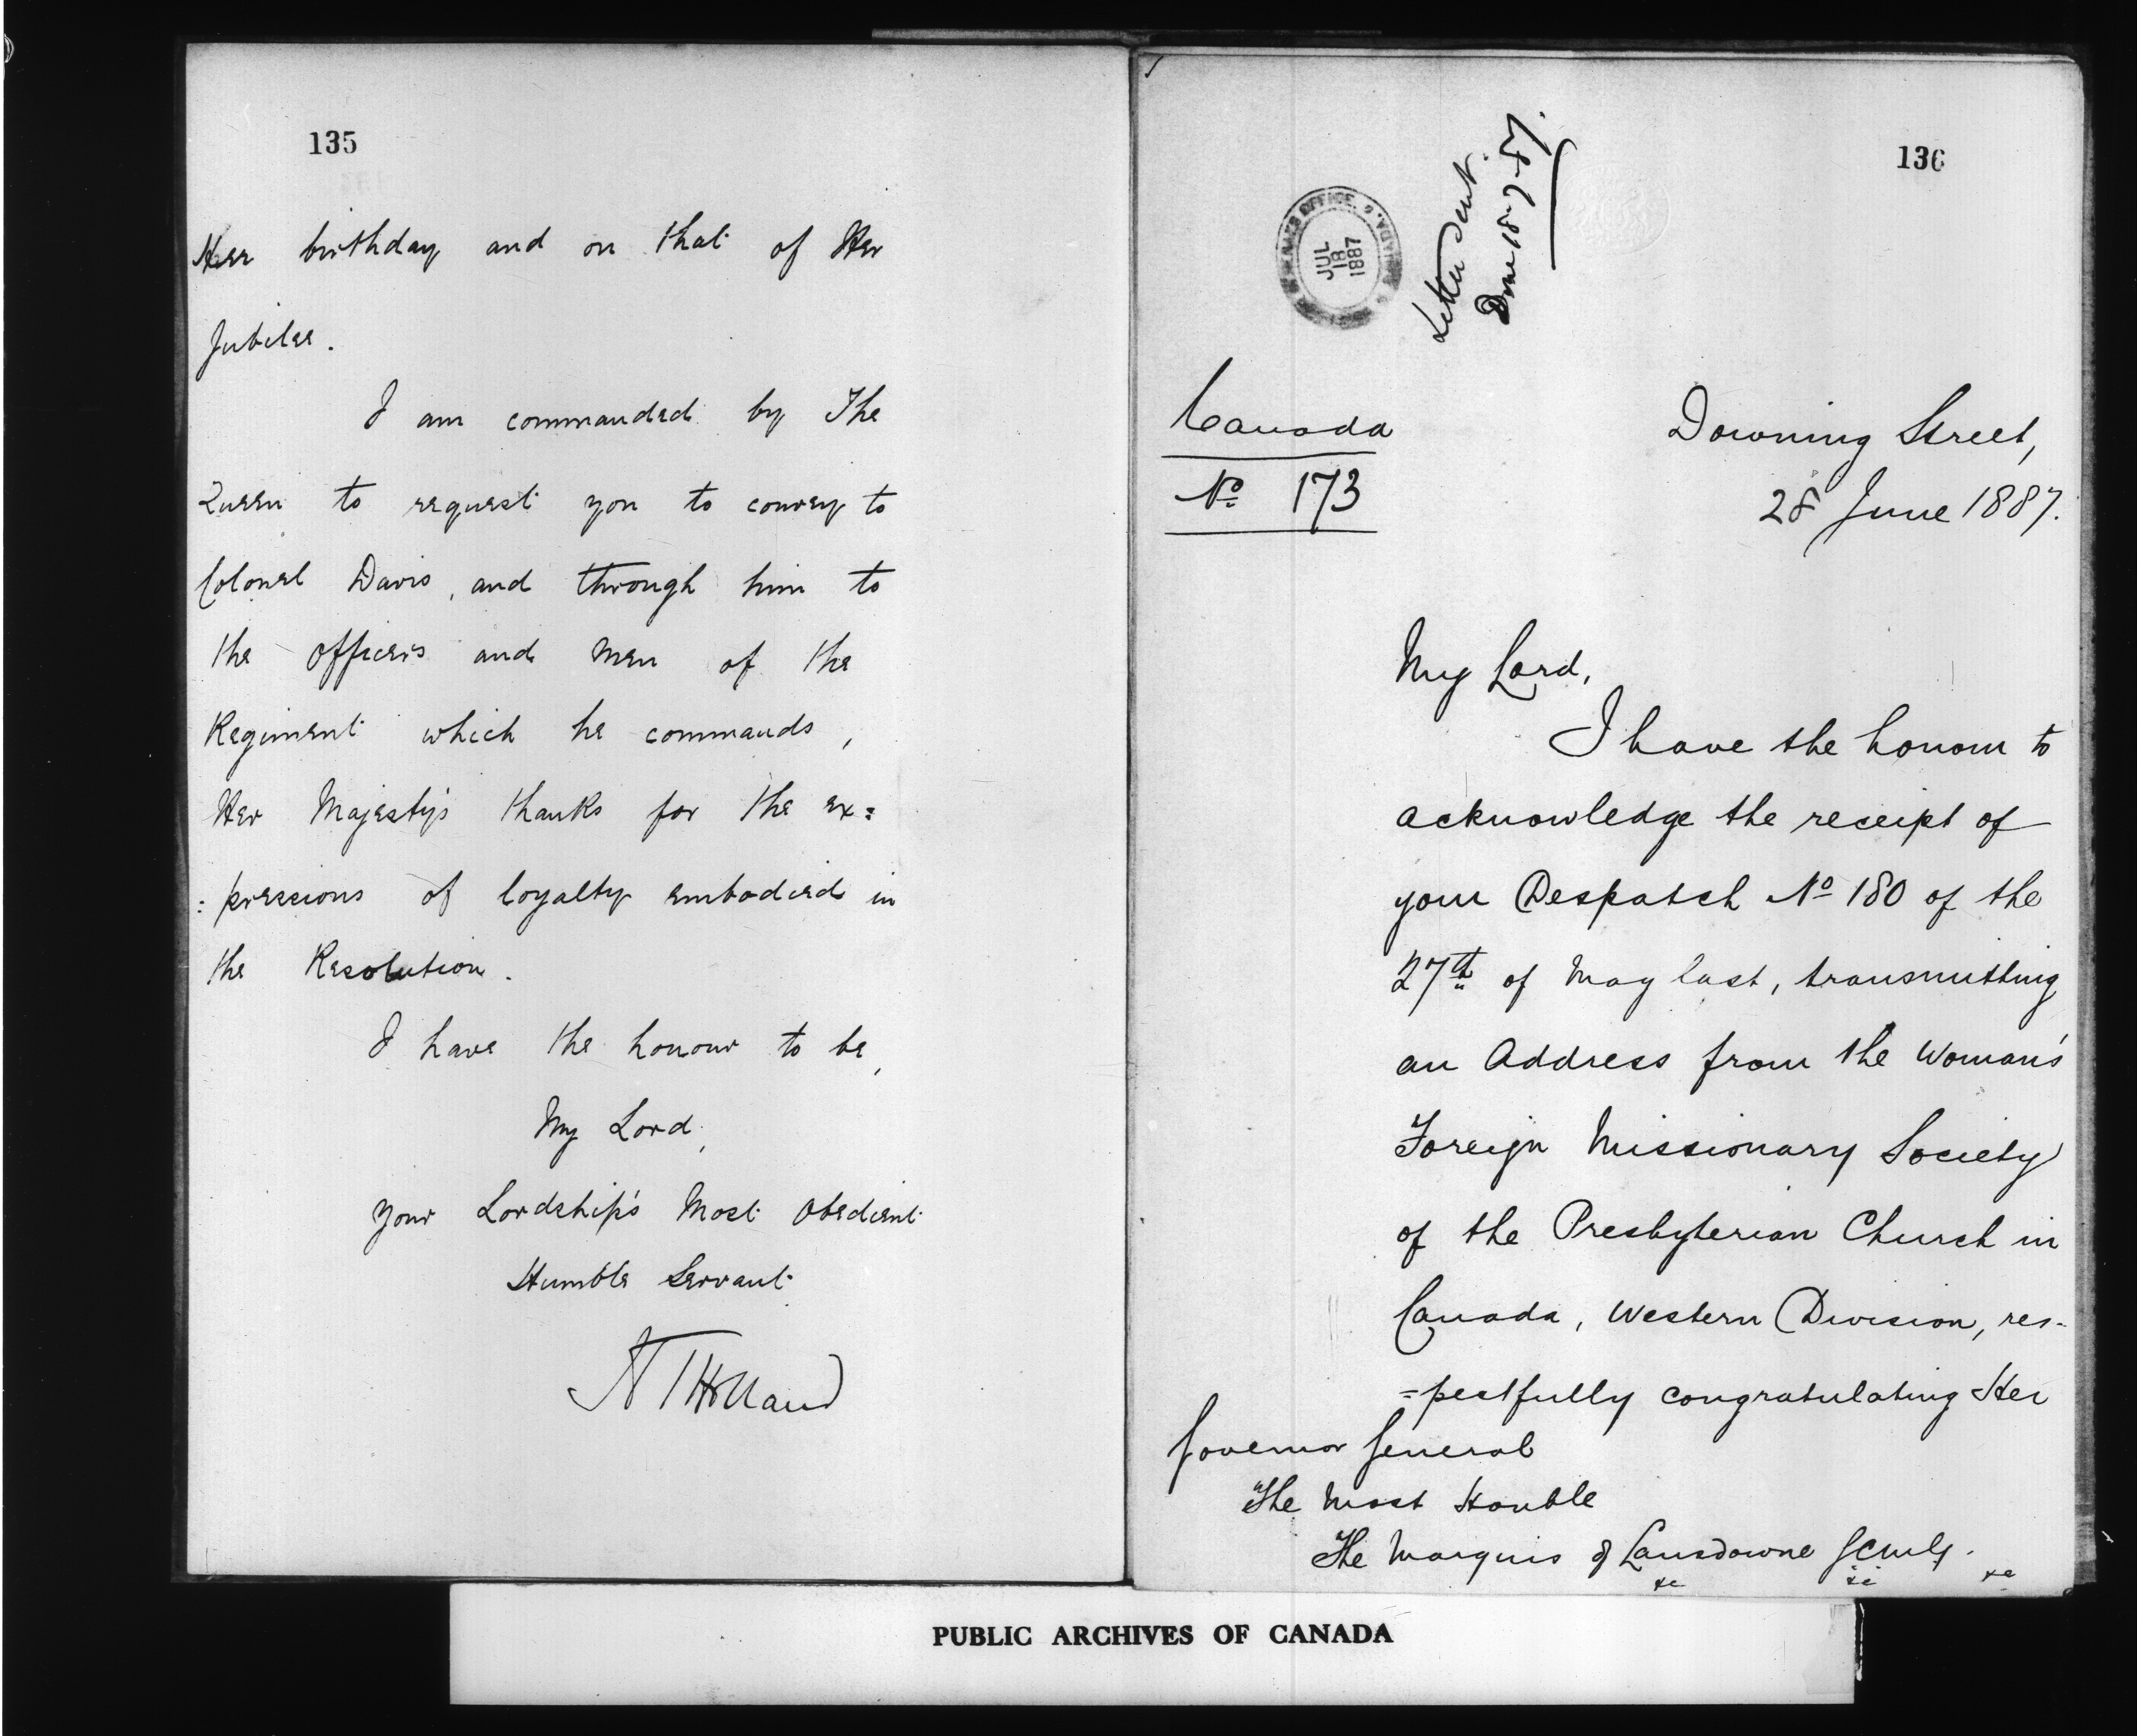 135
Her birthday and on that of Her
Jubilee.
I am commanded by The
Queen to request you to convey to
Colonel Davis, and through him to
the officers and men of the
Regiment which he commands,
Her Majesty's thanks for the ex=
:pressions of loyalty embodied in
the Resolution.
I have the honour to be,
My Lord,
Your Lordship's Most Obedient
Humble Servant
136
JUL
18
1887
Letter sent.
Done 18-7-87.
Canada
No 173
Downing Street,
28 June 1887.
My Lord,
I have the honour to
acknowledge the receipt of
your Despatch No 180 of the
27th of May last, transmitting
an Address from the Woman's
Foreign Missionary Society
of the Presbyterian Church in
Canada, Western Division, res-
=pectfully congratulating Her
Governor General
The Most Honble
The Marquis of Lansdowne GCMG.
&c &c &c
PUBLIC ARCHIVES OF CANADA